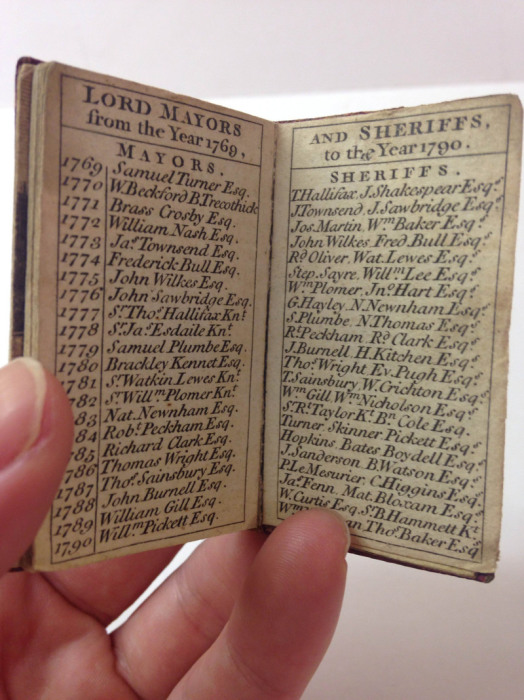 LORD MAYORS
from the Year 1769,
MAYORS.
1769 Samuel Turner Esq.
1770 W. Beckford B. Trecothick
1771 Brass Crosby Esq.
1772 William Nash Esq.
1773 Jas. Townsend Esq.
1774 Frederick Bull Esq.
1775 John Wilkes Esq.
1776 John Sawbridge Esq.
1777 Sr. Thos. Hallifax Knt.
1778 Sr. Jas. Esdaile Knt.
1779 Samuel Plumbe Esq.
1780 Brackley Kennet Esq.
1781 Sr. Watkin Lewes Knt.
1782 Sr. Willm. Plomer Knt.
83 Nat. Newnham Esq.
84 Robt. Peckham Esq.
85 Richard Clark Esq.
1786 Thomas Wright Esq.
1787 Thos. Sainsbury Esq.
1788 John Burnell Esq.
1789 William Gill Esq.
1790 Willm. Pickett Esq.
AND SHERIFFS,
to the Year 1790.
SHERIFFS.
T. Hallifax J. Shakespear Esqrs.
J. Townsend J. Sawbridge Esqrs.
Jos. Martin Wm. Baker Esqrs.
John Wilkes Fred. Bull Esqrs.
Rd. Oliver Wat. Lewes Esqrs.
Step. Sayre Willm. Lee Esqrs.
Wm. Plomer Jno. Hart Esqrs.
G. Hayley N. Newnham Esqrs.
S. Plumbe N. Thomas Esqrs.
Rt. Peckham Rd. Clark Esqrs.
J. Burnell H. Kitchen Esqrs.
Thos. Wright Ev. Pugh Esqrs.
T. Sainsbury W. Crichton Esqrs.
Wm. Gill Wm. Nicholson Esqrs.
Sr. Rt. Taylor Kt. Bn. Cole Esq.
Turner Skinner Pickett Esqrs.
Hopkins Bates Boydell Esqrs.
J. Sanderson B. Watson Esqrs.
P. Le Mesurier C. Higgins Esqrs.
Jas. Fenn Mat. Bloxam Esqrs.
W. Curtis Esq. Sr. B. Hammett Kt.
Thos. Baker Esq